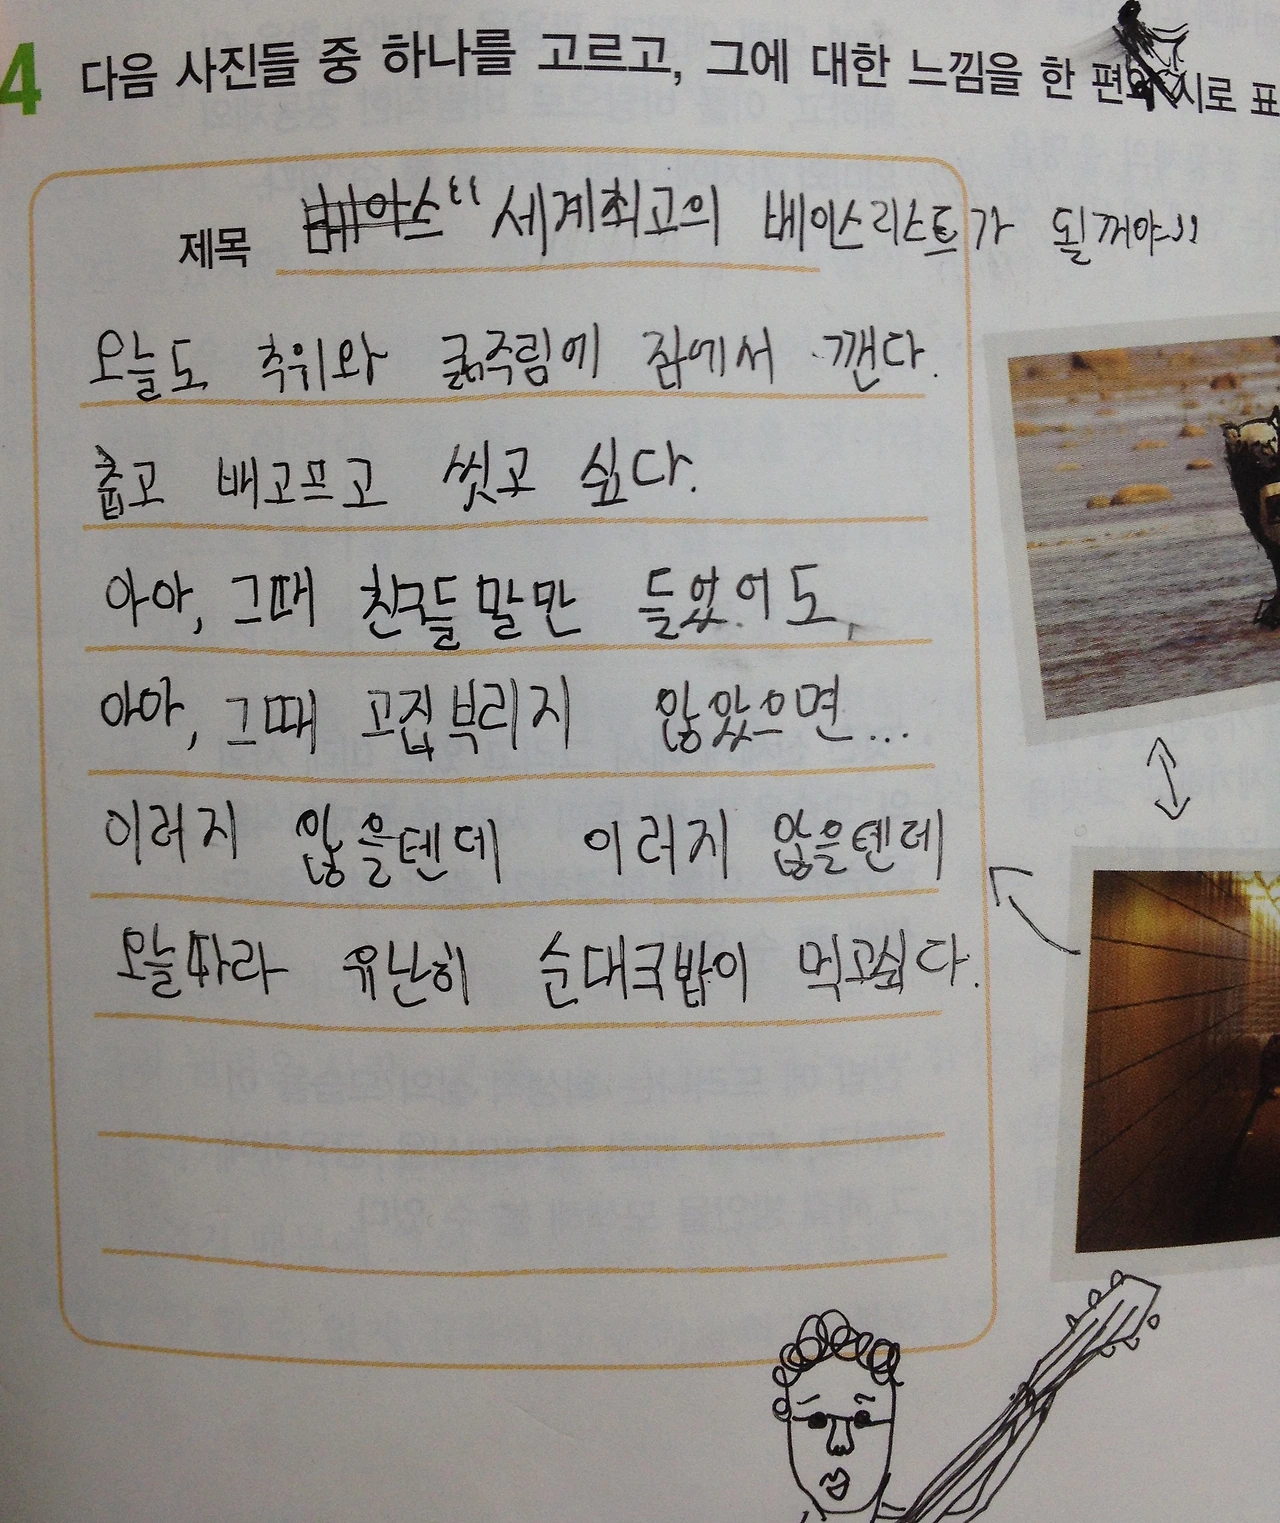 4 다음 사진들 중 하나를 고르고, 그에 대한 느낌을 한 편의 시로 표
제목 베이스 “세계최고의 베이스리스트가 될꺼야”
오늘도 추위와 굶주림에 잠에서 깬다.
춥고 배고프고 씻고 싶다.
아아, 그때 친구들말만 들었어도,
아아, 그때 고집부리지 않았으면...
이러지 않을텐데 이러지 않을텐데
오늘따라 유난히 순대국밥이 먹고싶다.